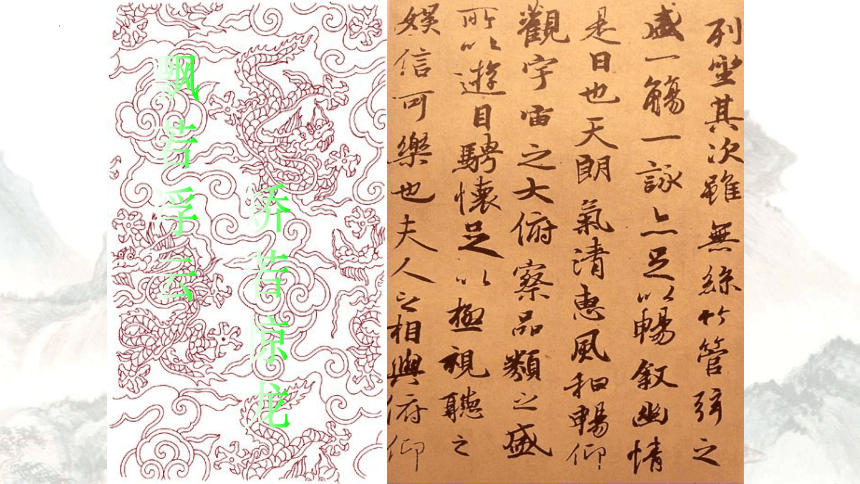 飘若浮云
矫若惊龙
列坐其次雖無絲竹管弦之
盛一觴一詠亦足以暢叙幽情
是日也天朗氣清惠風和暢仰
觀宇宙之大俯察品類之盛
所以遊目騁懷足以極視聽之
娱信可樂也夫人之相與俯仰